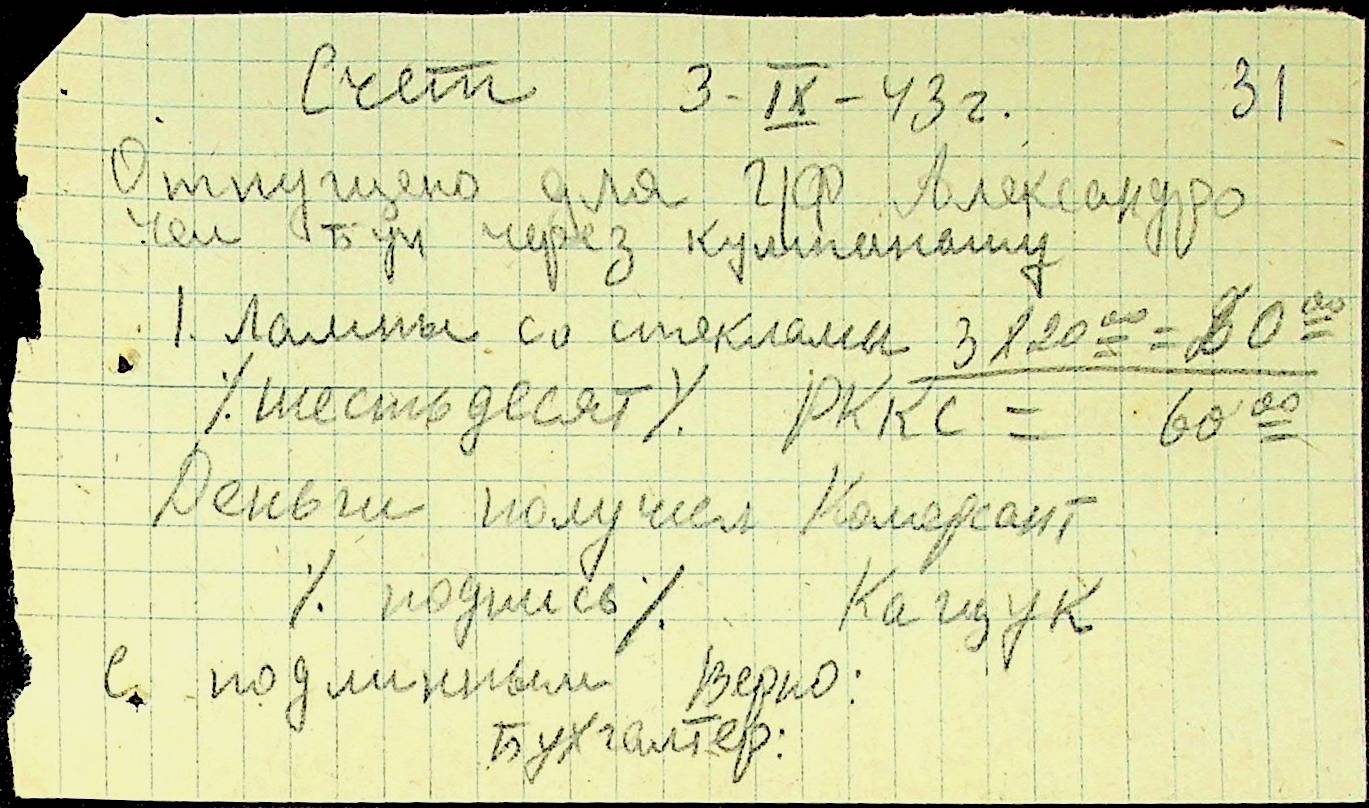 Счет 3-IX-43 г. 31
Отпущено для Александро
через
1. Лампы со стеклами 3 х 20 00 = 60 00
/. шестьдесят /. РККС = 60 00
Деньги получил Комерсант
/. подпись /. Кащук
С подлинным верно:
Бухгалтер: